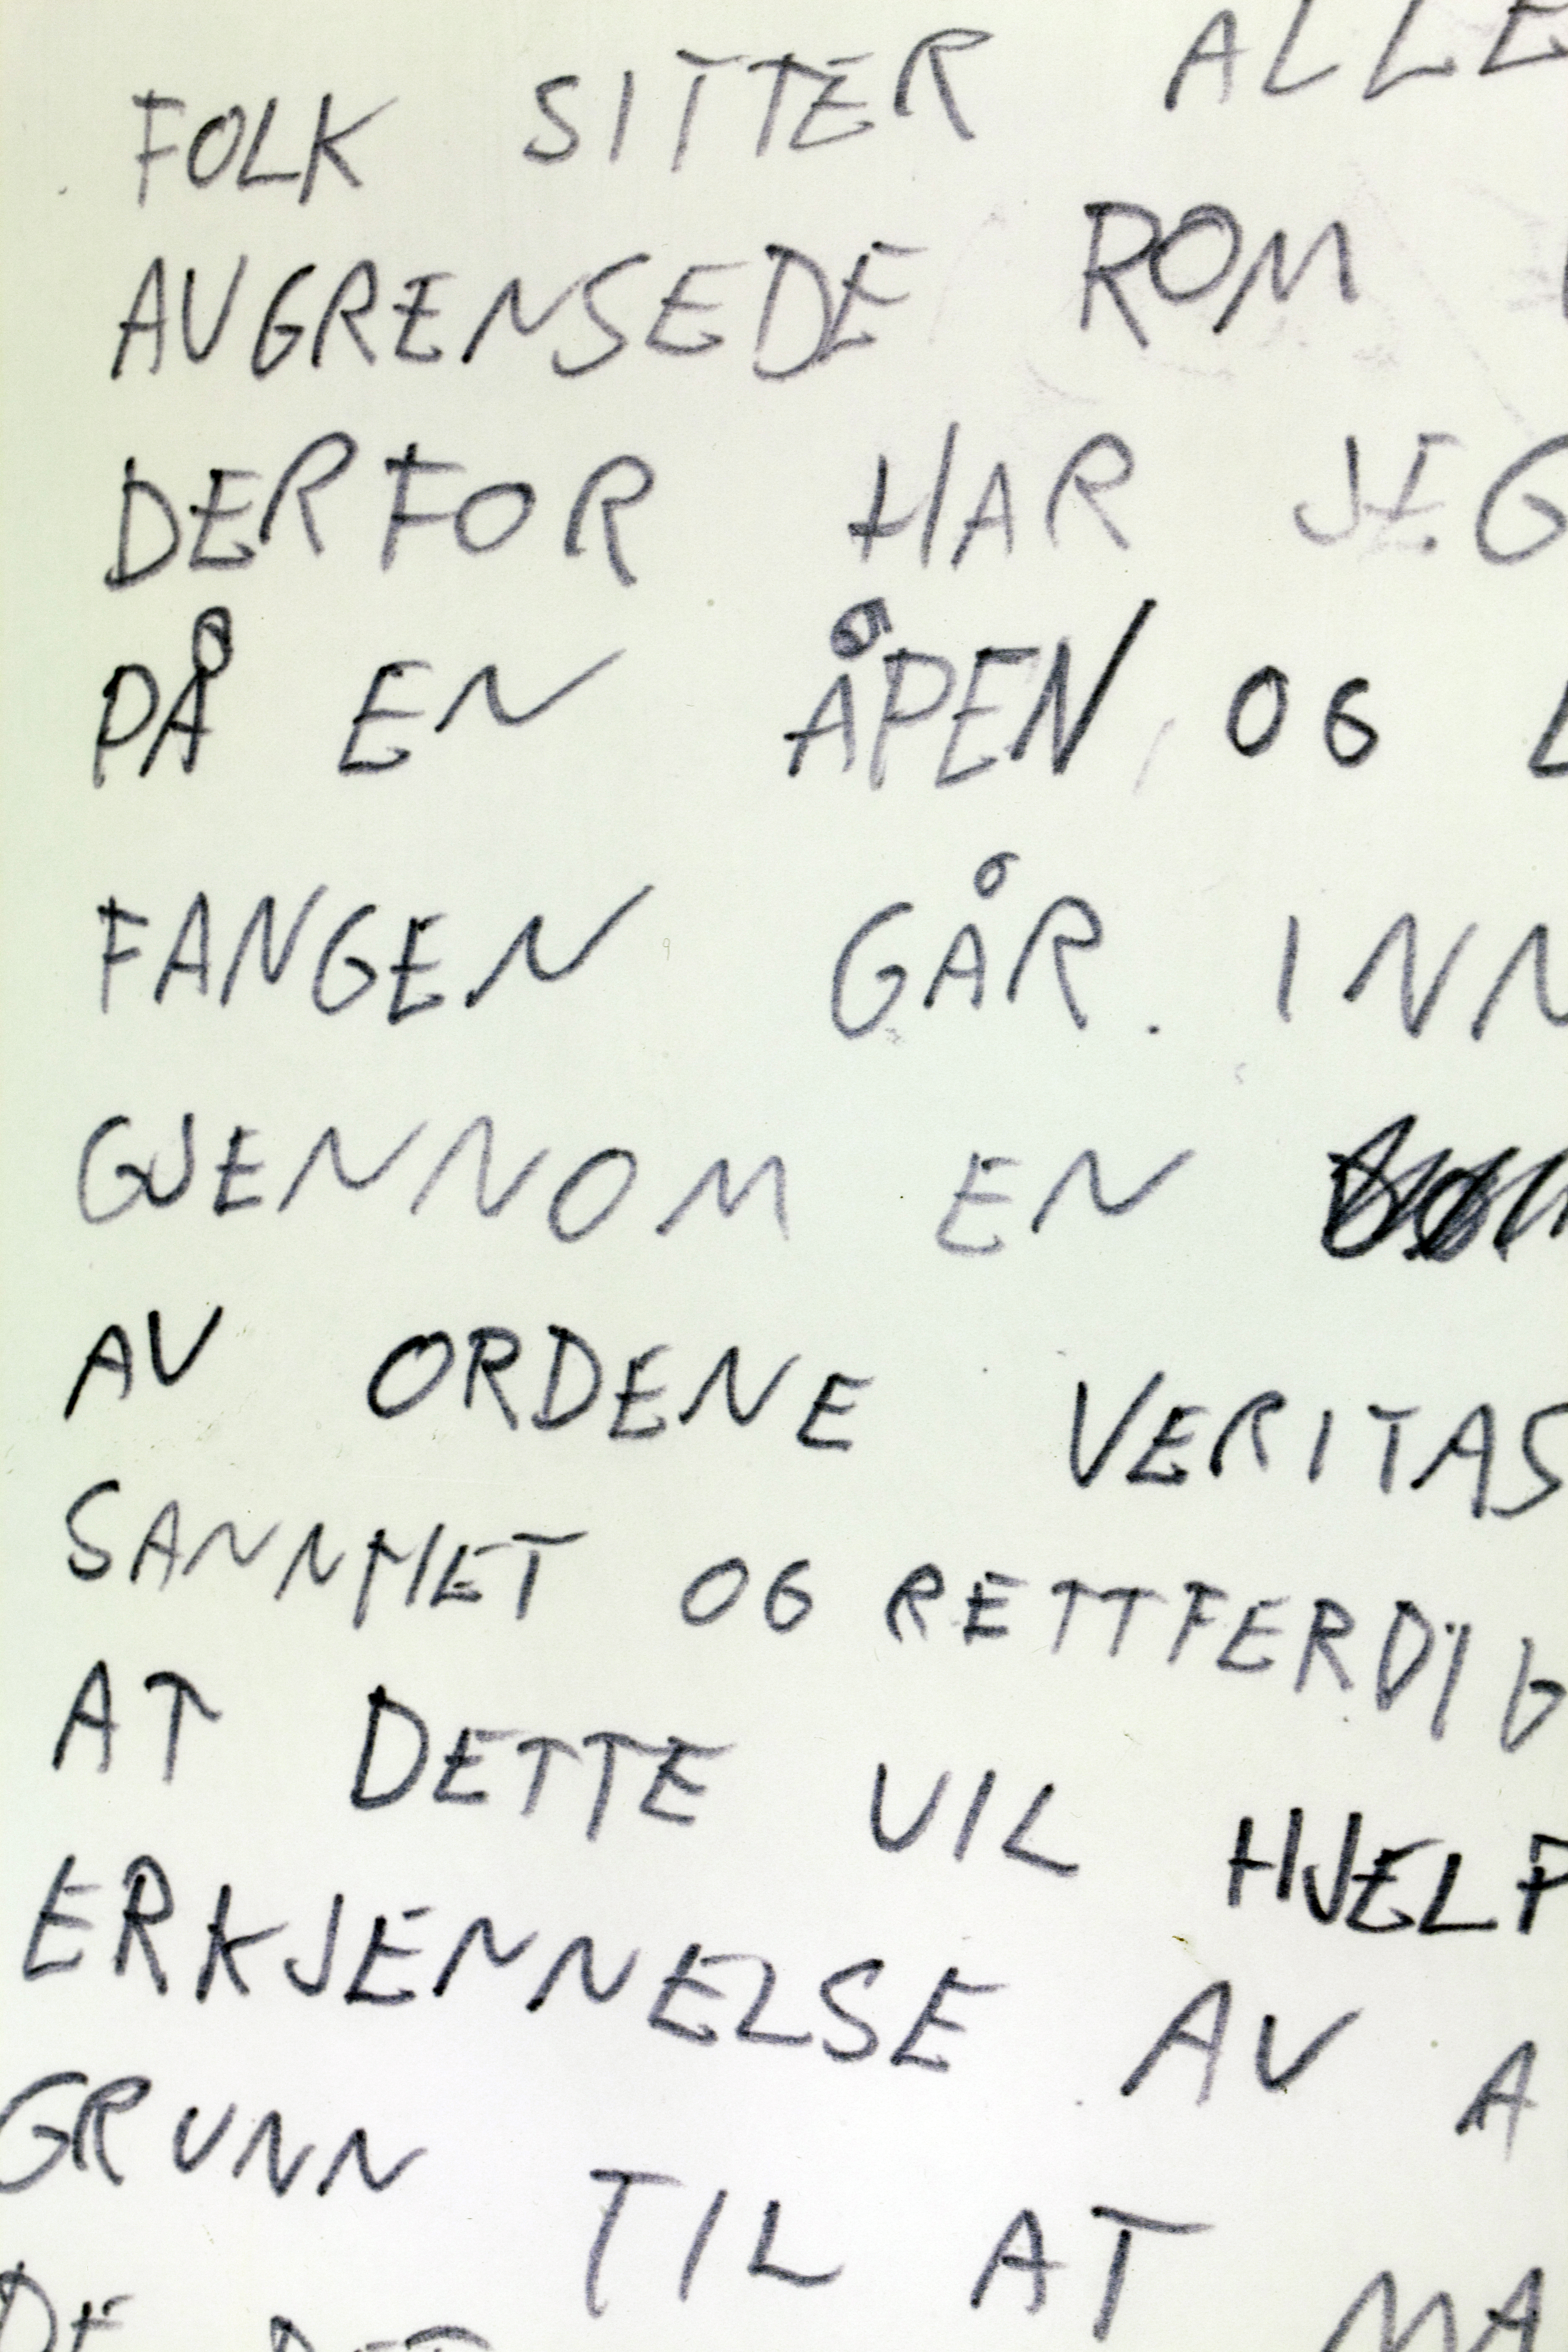 FOLK SITTER ALLE
AVGRENSEDE ROM
DERFOR HAR JEG
PÅ EN ÅPEN, OG L
FANGEN GÅR. INN
GJENNOM EN
AV ORDENE VERITAS
SANNHET OG RETTFERDIG
AT DETTE VIL HJELP
ERKJENNELSE AV A
GRUNN TIL AT MA